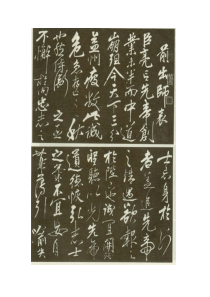 前出師表
臣亮言先帝創
業未半而中道
崩殂今天下三分
益州疲敝此誠
危急存亡之
秋也然侍衛之臣
不懈於內忠志之
士忘身於外
者蓋追先帝
之殊遇欲報之
於陛下誠宜開
聖聽以光先帝
遺德恢弘志士
之氣不宜妄自
菲薄引喻失